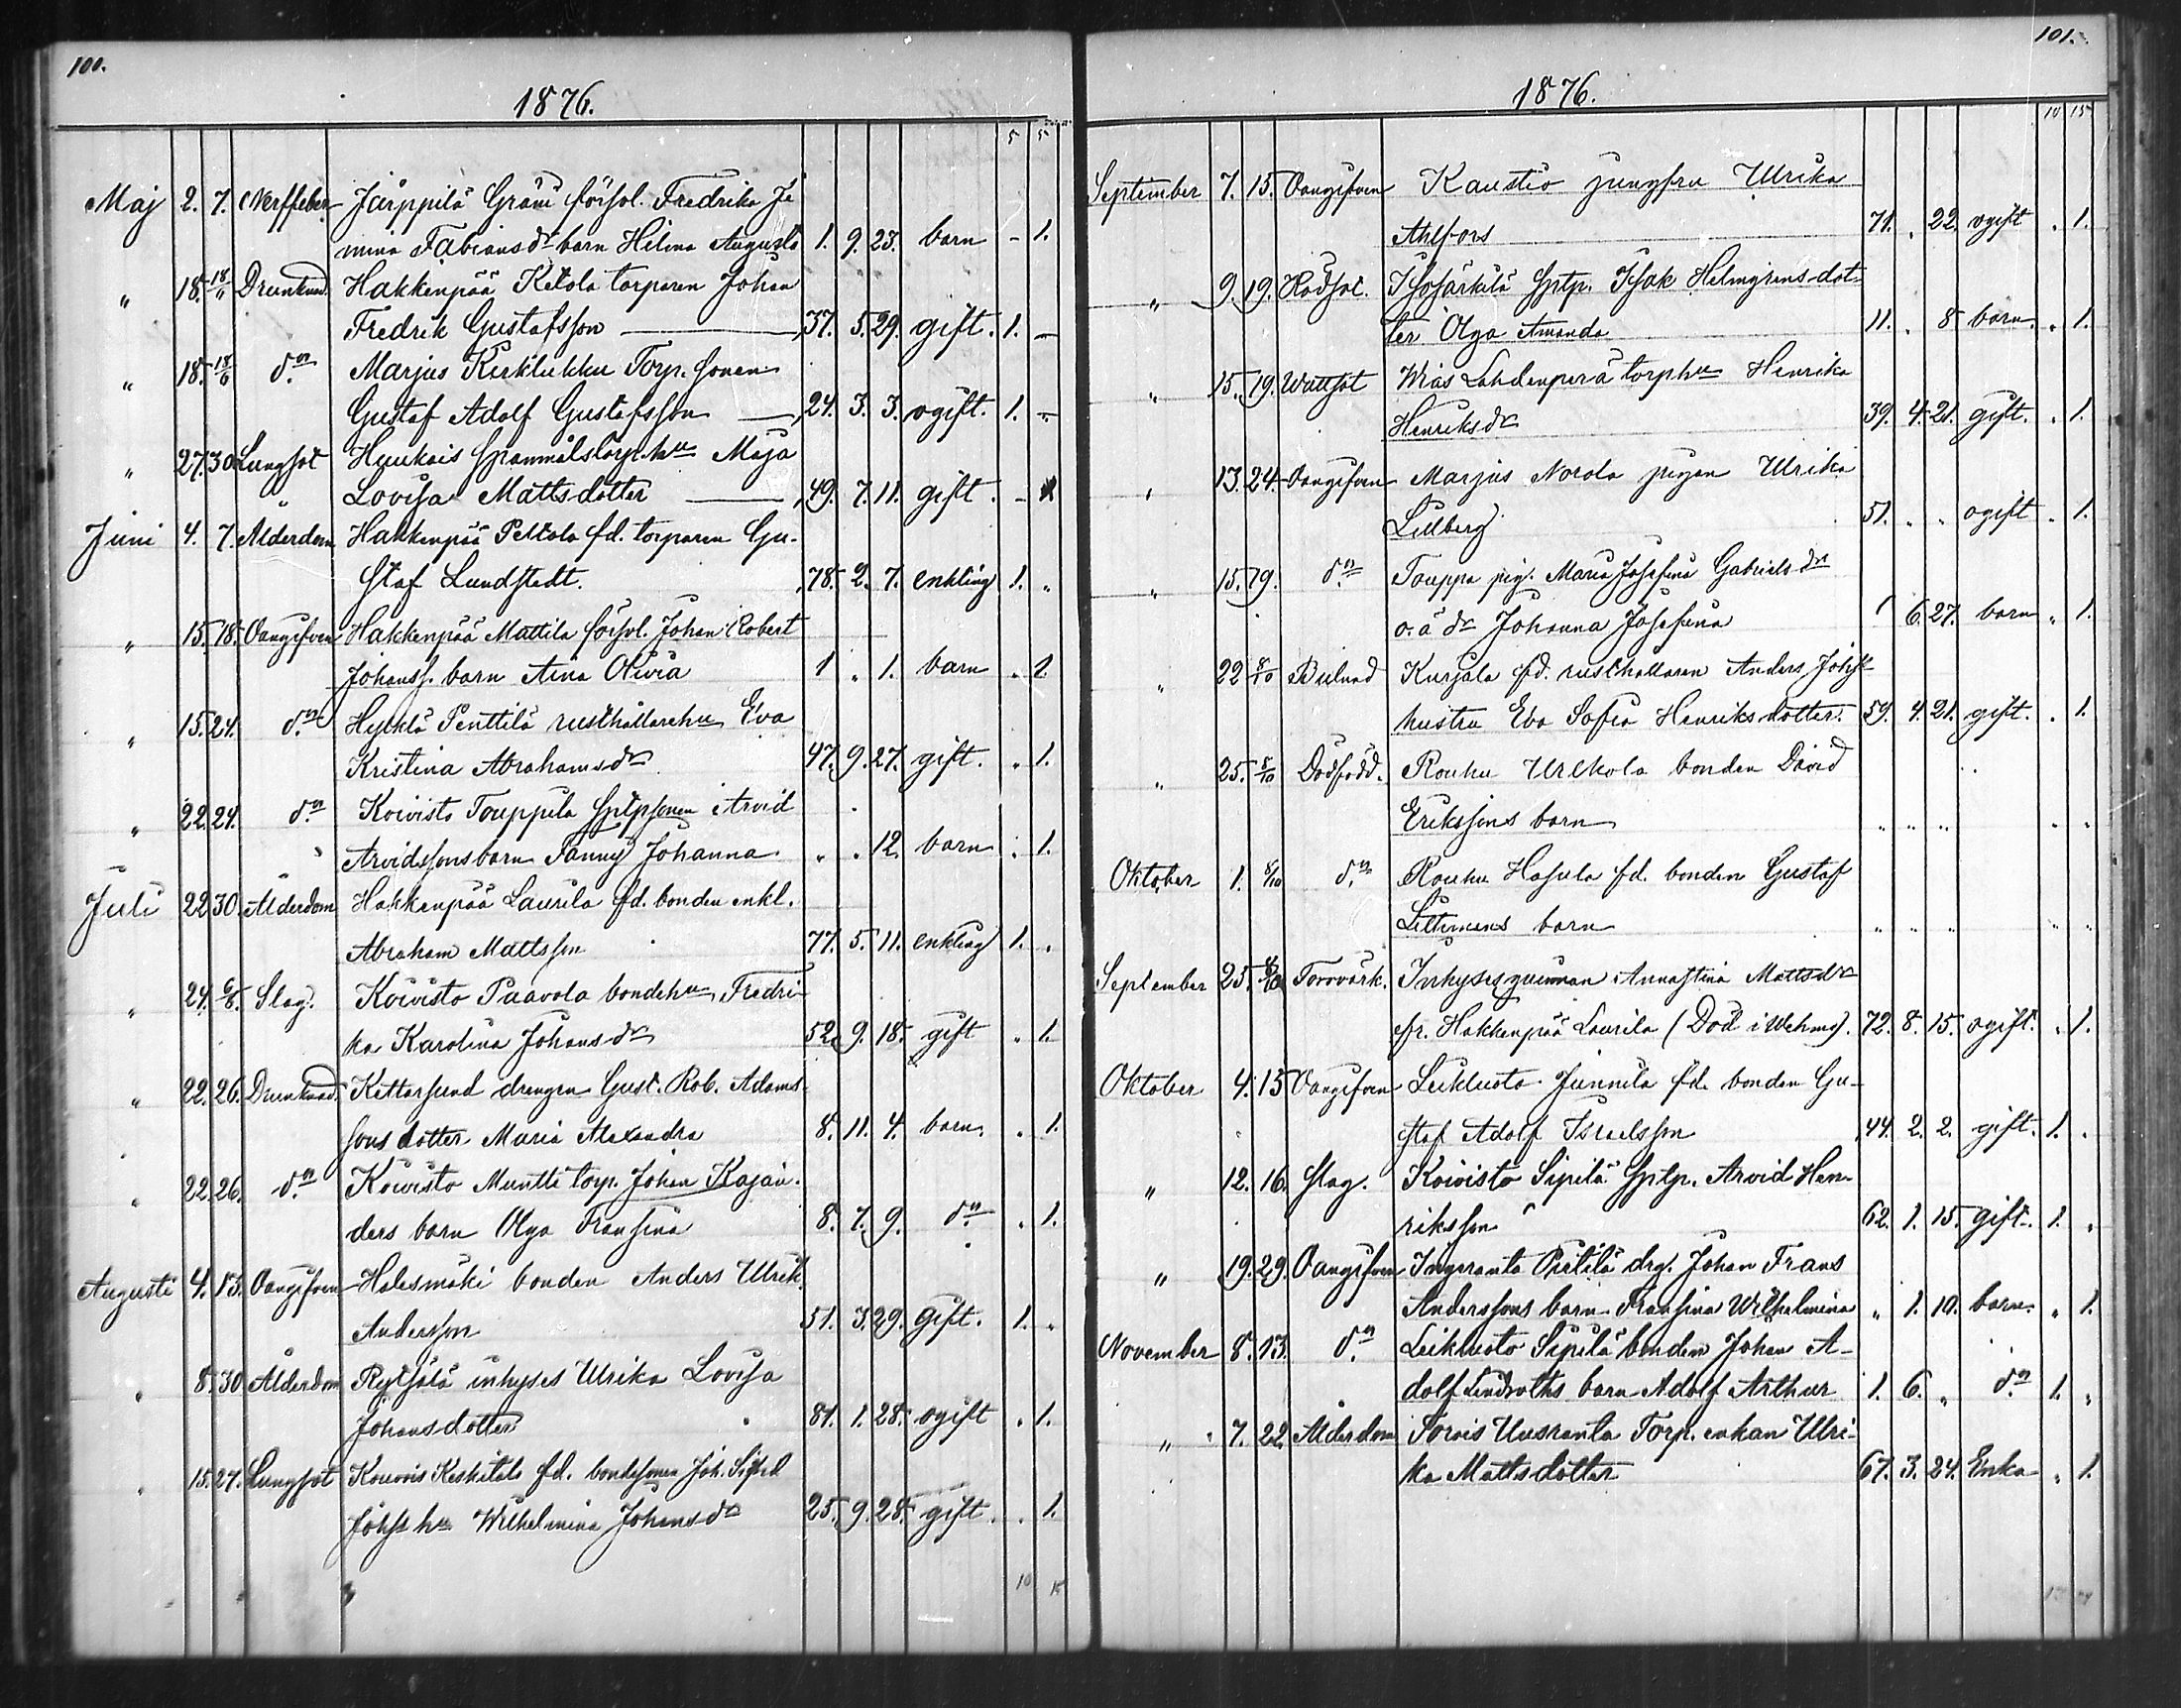 100.
1876.
5 5
Maj 2. 7. Nerffeber Järppilä Gräni försvl. Fredrika Je
mina Fabiansdr barn Hilma Augusta 1. 9. 23. barn - 1.
" 18. 18/6 Drunknad. Hakkenpää Ketola torparen Johan
Fredrik Gustafsson 37. 5. 29. gift. 1. -
" 18. 18/6 do Marjus Kerklukku Torp. sonen
Gustaf Adolf Gustafsson 24. 3. 3. ogift. 1. -
" 27. 30. Lungsot Huukais Grannmålstorp. hu Maja
Lovisa Mattsdotter 49. 7. 11. gift. - 1
Juni 4. 7. Ålderdom Hakkenpää Peltola fd. torparen Gu-
staf Lundstedt. 78. 2. 7. enkling 1. "
" 15. 18. Oangifven Hakkenpää Mattila försvl. Johan Robert
Johanss. barn Aina Olivia 1 " 1. barn " 1.
" 15. 24. do Hylklä Penttilä rusthållarehu Eva
Kristina Abrahamsdr 47. 9. 27. gift. " 1.
" 22. 24. do Koivisto Touppila sptpsonen Arvid
Arvidssons barn Fanny Johanna " " 12. barn " 1.
Juli 22. 30. Ålderdom Hakkenpää Laurila fd. bonden enkl.
Abraham Mattsson 77. 5. 11. enkling 1. "
" 24. 6/8. Slag. Koivisto Paavola bondehu Fredri-
ka Karolina Johansdr 52. 9. 18. gift " 1.
" 22. 26. Drunknad. Kettarsund drengen Gust. Rob. Adams-
sons dotter Maria Alexandra 8. 11. 4. barn. " 1.
" 22. 26. do Koivisto Muntti torp. Johan Kajan-
ders barn Olga Fransina 8. 7. 9. do " 1.
Augusti 4. 13. Oangifven Halesmäki bonden Anders Ulrik
Andersson 51. 3. 29. gift. 1. "
" 8. 30. Ålderdom Rytsälä inhyses Ulrika Lovisa
Johansdotter 81. 1. 28. ogift " 1.
" 15. 27. Lungsot Kouvois Keskitalo fd. bondsonen Joh. Sigfrid
Johss hu Wilhelmina Johansdr 25. 9. 28. gift. " 1.
10 15
101.
1876.
10 15
September 7. 15. Oangifven Kaustio jungfru Ulrika
Ahlfors 71. " 22. ogift " 1.
" 9. 19. Rödsot. Isosärkilä sptp. Isak Helmgrens dot-
ter Olga Amanda 11. " 8 barn. " 1.
" 15. 19. Wattsot Wias Lahdenperä torphu Henrika
Henriksdr 39. 4. 21. gift. " 1.
" 13. 24. Oangifven Marjus Norola pigan Ulrika
Lillberg 51. " " ogift " 1.
" 15. 19. do Touppa pig. Maria Josefina Gabrielsdr
o.ä dr Johanna Josefina 1 6. 27. barn " 1.
" 22 8/10 Kurjala fd. rusthållaren Anders Johss
hustru Eva Sofia Henriksdotter. 59. 4. 21. gift. " 1.
" 25. 8/10 Dödfödd. Rouhu Urlkola bonden David
Erikssons barn " " " " "
Oktober 1. 8/10 do Rouhu Hasula fd. bonden Gustaf
Littimans barn " " " " "
September 25. 8/10 Torrvärk. Inhysesqvinnan Annastina Mattsdr
fr. Hakkenpää Laurila (Död i Wehmo). 72. 8. 15. ogift. " 1.
Oktober 4. 15 Oangifven Leikluoto Junnila fd. bonden Gu-
staf Adolf Israelsson 44. 2. 2. gift. 1. "
" 12. 16. Slag. Koivisto Sipilä sptp. Arvid Hen-
riksson 62. 1. 15. gift. 1. "
" 19. 29. Oangifven Ingeranta Pirtilä drg. Johan Frans
Anderssons barn Fransina Wilhelmina " 1. 10. barn. " 1.
November 8. 13. do Leikluoto Sipilä bonden Johan A-
dolf Lindroths barn Adolf Arthur 1. 6. " do 1. "
" 7. 22. Ålderdom Sorvis Uusranta Torp. enkan Ulri-
ka Mattsdotter 67. 3. 24. Enka " 1.